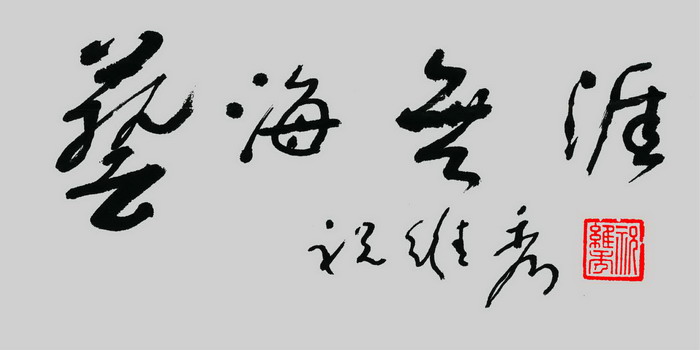 藝海無涯
祝維秀
祝維秀